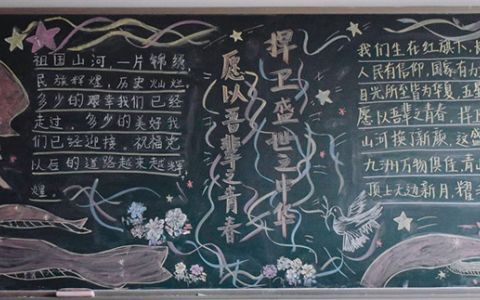 祖国山河,一片锦绣
民族辉煌,历史灿烂
多少的艰辛我们已经
走过,多少的美好我
们已经迎接,祝福党
以后的道路越来越辉
煌。
愿以吾辈之青春
捍卫盛世之中华
我们生在红旗下,
人民有信仰,国家有力
目光所至皆为华夏,五
愿以吾辈之青春,捍
山河换新颜,这盛
九洲万物俱佳,青山
顶上无边新月,耀